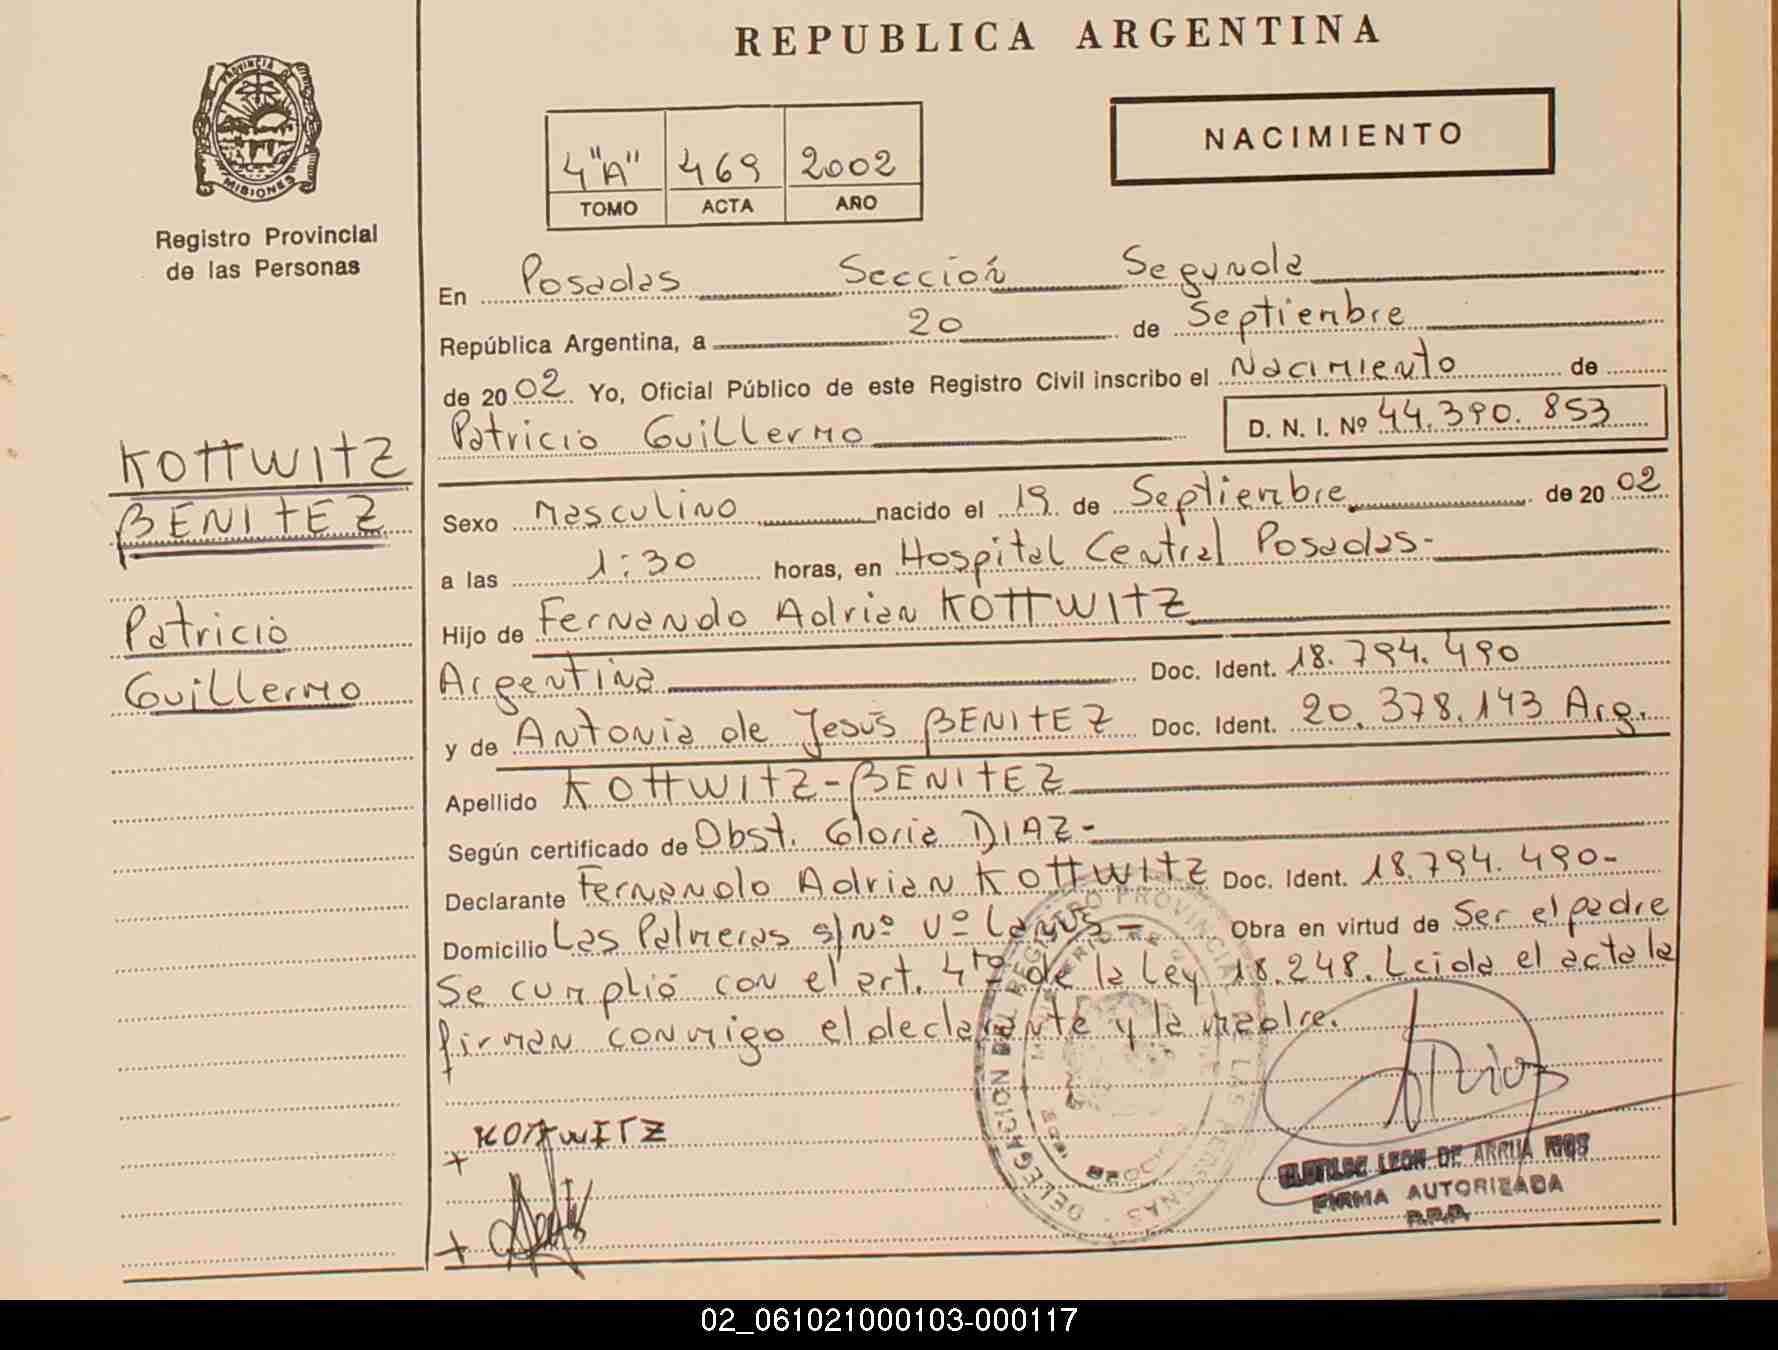 REPUBLICA ARGENTINA
PROVINCIA DE
MISIONES
Registro Provincial
de las Personas
4"A" 469 2002
TOMO ACTA AÑO
NACIMIENTO
En Posadas Sección Segunda
República Argentina, a 20 de Septiembre
de 2002 Yo, Oficial Público de este Registro Civil inscribo el Nacimiento de
Patricio Guillermo D. N. I. Nº 44.390.853
KOTTWITZ
BENITEZ
Patricio
Guillermo
Sexo Masculino nacido el 19 de Septiembre de 2002
a las 1:30 horas, en Hospital Central Posadas-
Hijo de Fernando Adrian KOTTWITZ
Argentina Doc. Ident. 18.794.490
y de Antonia de Jesús BENITEZ Doc. Ident. 20.378.143 Arg.
Apellido KOTTWITZ-BENITEZ
Según certificado de Obst. Gloria DIAZ-
Declarante Fernando Adrian KOTTWITZ Doc. Ident. 18.794.490-
Domicilio Las Palmeras s/Nº Vº Lanús - Obra en virtud de Ser el padre
Se cumplió con el art. 4to de la Ley 18.248. Leida el acta la
firman conmigo el declarante y la madre.
DELEGACION DEL REGISTRO PROVINCIAL DE LAS PERSONAS
+ KOTTWITZ
+
LEON DE ARRUA RIOS
FIRMA AUTORIZADA
R.P.P.
02_061021000103-000117